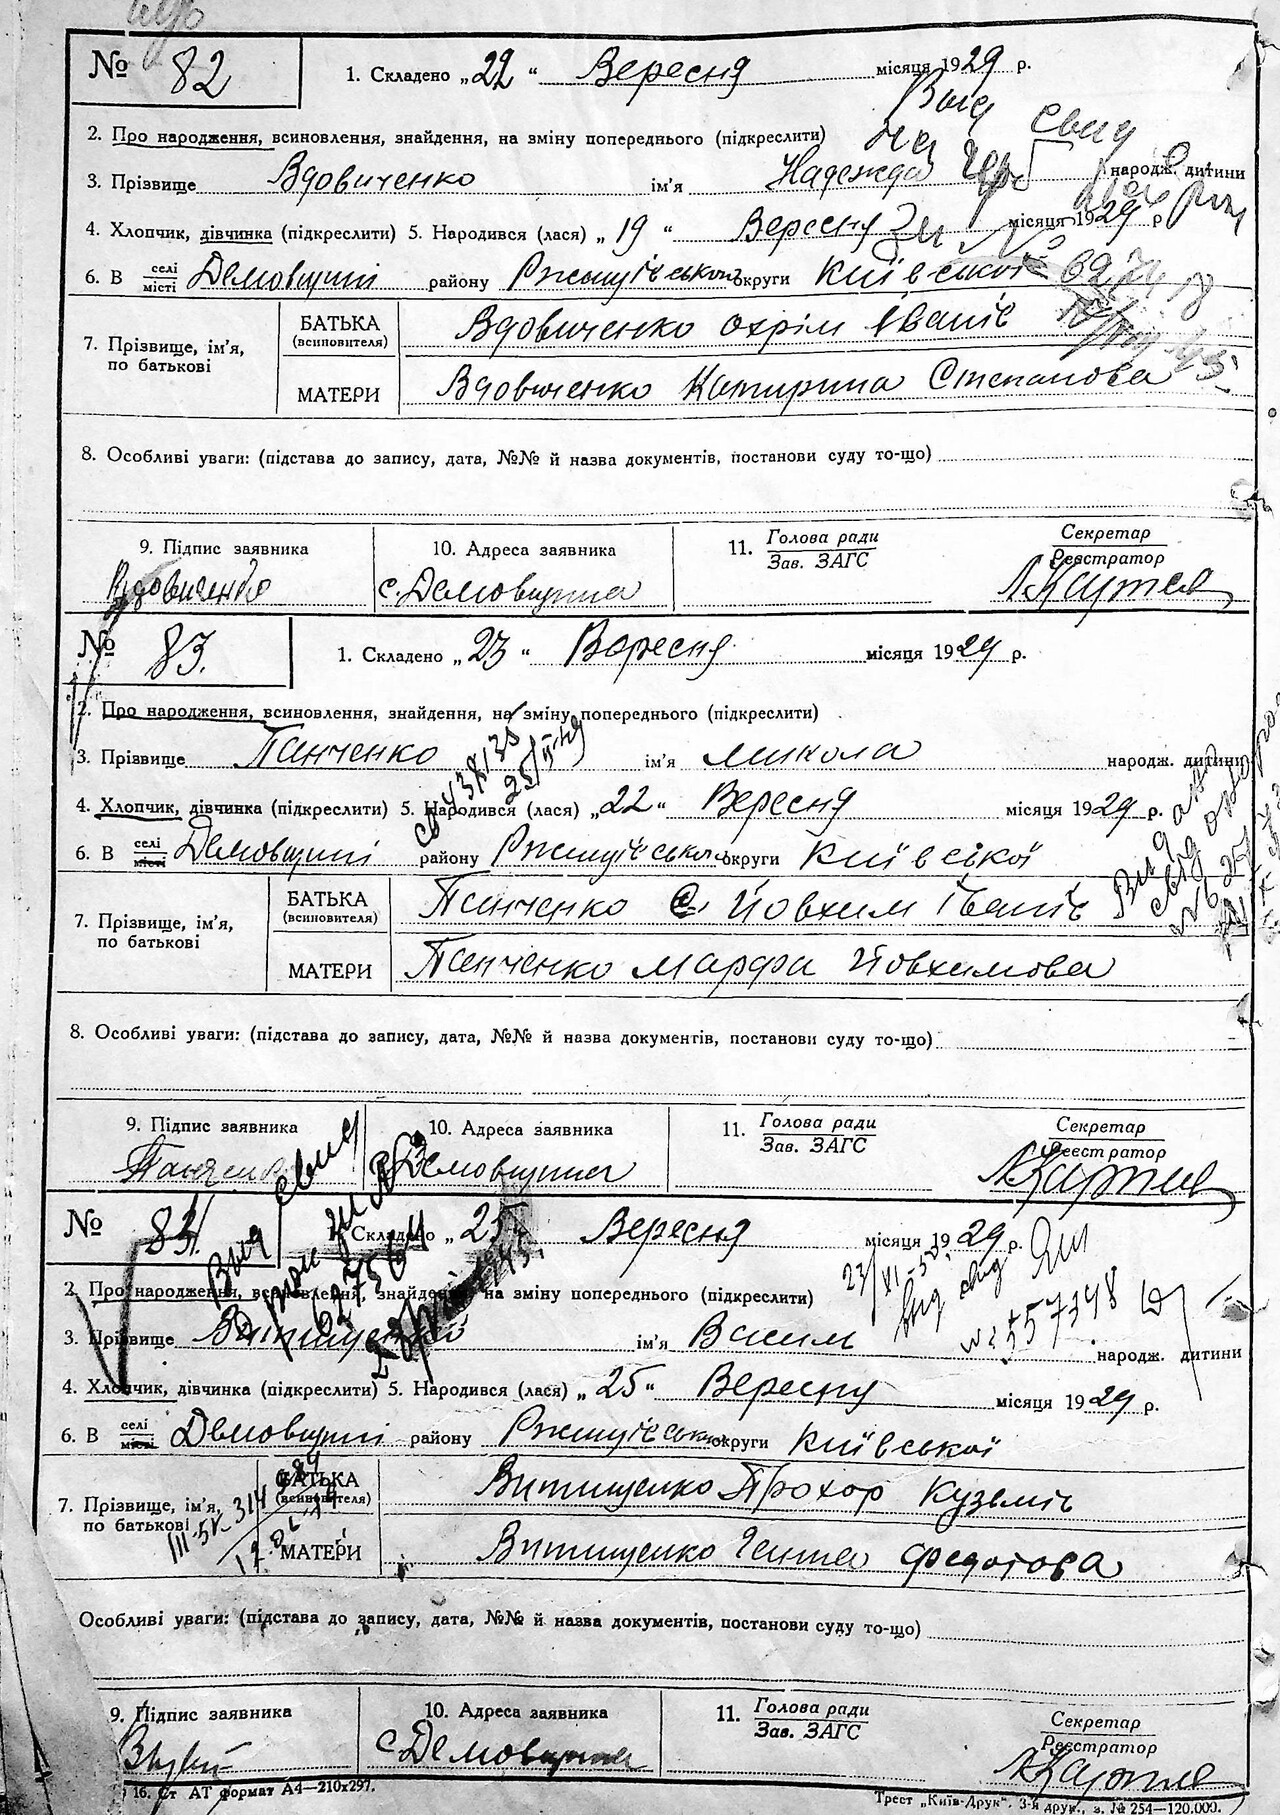 № 82
1. Складено „22“ Вересня місяця 1929 р.
2. Про народження, всиновлення, знайдення, на зміну попереднього (підкреслити)
3. Прізвище Вдовиченко ім'я Надежда народж. дитини
4. Хлопчик, дівчинка (підкреслити) 5. Народився (лася) „19“ Вересня місяця 1929 р
6. В селі місті Демовщині району Ржищівської округи Київської
7. Прізвище, ім'я, по батькові
БАТЬКА (всиновителя) Вдовиченко Охрім Іванів
МАТЕРИ Вдовиченко Катирина Степанова
8. Особливі уваги: (підстава до запису, дата, №№ й назва документів, постанови суду то-що)
9. Підпис заявника 10. Адреса заявника 11. Голова ради Зав. ЗАГС Секретар Реєстратор
Вдовиченко с. Демовщина
№ 83.
1. Складено „23“ Вересня місяця 1929 р.
2. Про народження, всиновлення, знайдення, на зміну попереднього (підкреслити)
3. Прізвище Панченко ім'я Микола народж. дитини
4. Хлопчик, дівчинка (підкреслити) 5. Народився (лася) „22“ Вересня місяця 1929 р.
6. В селі місті Демовщині району Ржищівської округи Київської
7. Прізвище, ім'я, по батькові
БАТЬКА (всиновителя) Панченко Йовхим Іванів
МАТЕРИ Панченко Марфа Йовхимова
8. Особливі уваги: (підстава до запису, дата, №№ й назва документів, постанови суду то-що)
9. Підпис заявника 10. Адреса заявника 11. Голова ради Зав. ЗАГС Секретар Реєстратор
Панченко Демовщина
№ 84.
1. Складено „25 Вересня місяця 1929 р.
23/XI-50. вид свид
№ 557398
2. Про народження, всиновлення, знайдення, на зміну попереднього (підкреслити)
3. Прізвище Витищенко ім'я Васим народж. дитини
4. Хлопчик, дівчинка (підкреслити) 5. Народився (лася) „25“ Вересня місяця 1929 р.
6. В селі місті Демовщині району Ржищівської округи Київської
7. Прізвище, ім'я, по батькові
БАТЬКА (всиновителя) Витищенко Прохор Кузьмів
МАТЕРИ Витищенко Ганна Федотова
Особливі уваги: (підстава до запису, дата, №№ й назва документів, постанови суду то-що)
9. Підпис заявника 10. Адреса заявника 11. Голова ради Зав. ЗАГС Секретар Реєстратор
с. Демовщина
16. Ст АТ формат А4—210х297.
Трест „Київ-Друк“. 3-я друк., з. № 254—120.000.